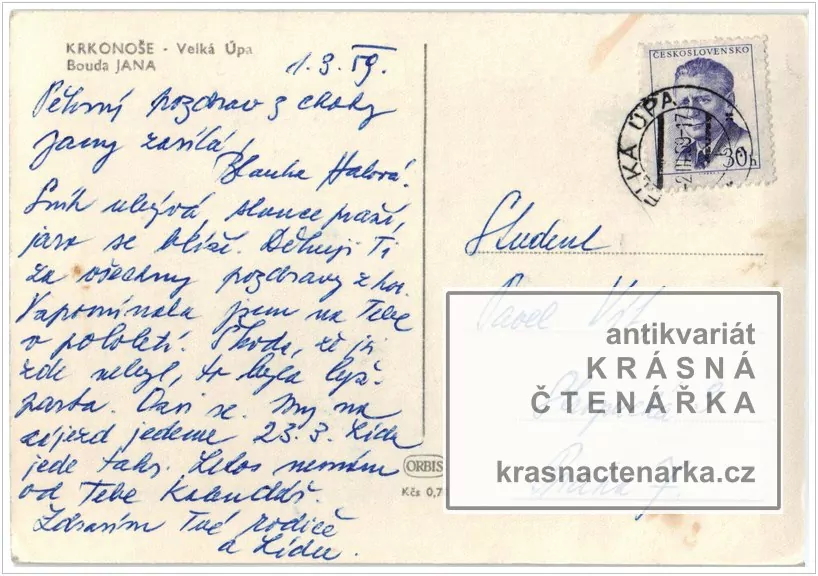 KRKONOŠE - Velká Úpa
Bouda JANA
1.3.59.
Pěkný pozdrav z chaty
Jany zasílá,
Blanka Halová.
Sníh ubývá, slunce praží,
jaro se blíží. Děkuji Ti
za všechny pozdravy z hor.
Vzpomínala jsem na Tebe
v pololetí. Škoda, že jsi
zde nebyl, to byla lyž.
parta. Ozvi se. My na
zájezd jedeme 23.3. Lída
jede taky. Letos nemám
od Tebe Kalendář.
Zdravím Tvé rodiče
a Lídu.
ORBIS
Kčs 0,7
ČESKOSLOVENSKO
30h
VELKÁ ÚPA
Student
Pavel
Praha 7.
antikvariát
KRÁSNÁ
ČTENÁŘKA
krasnactenarka.cz